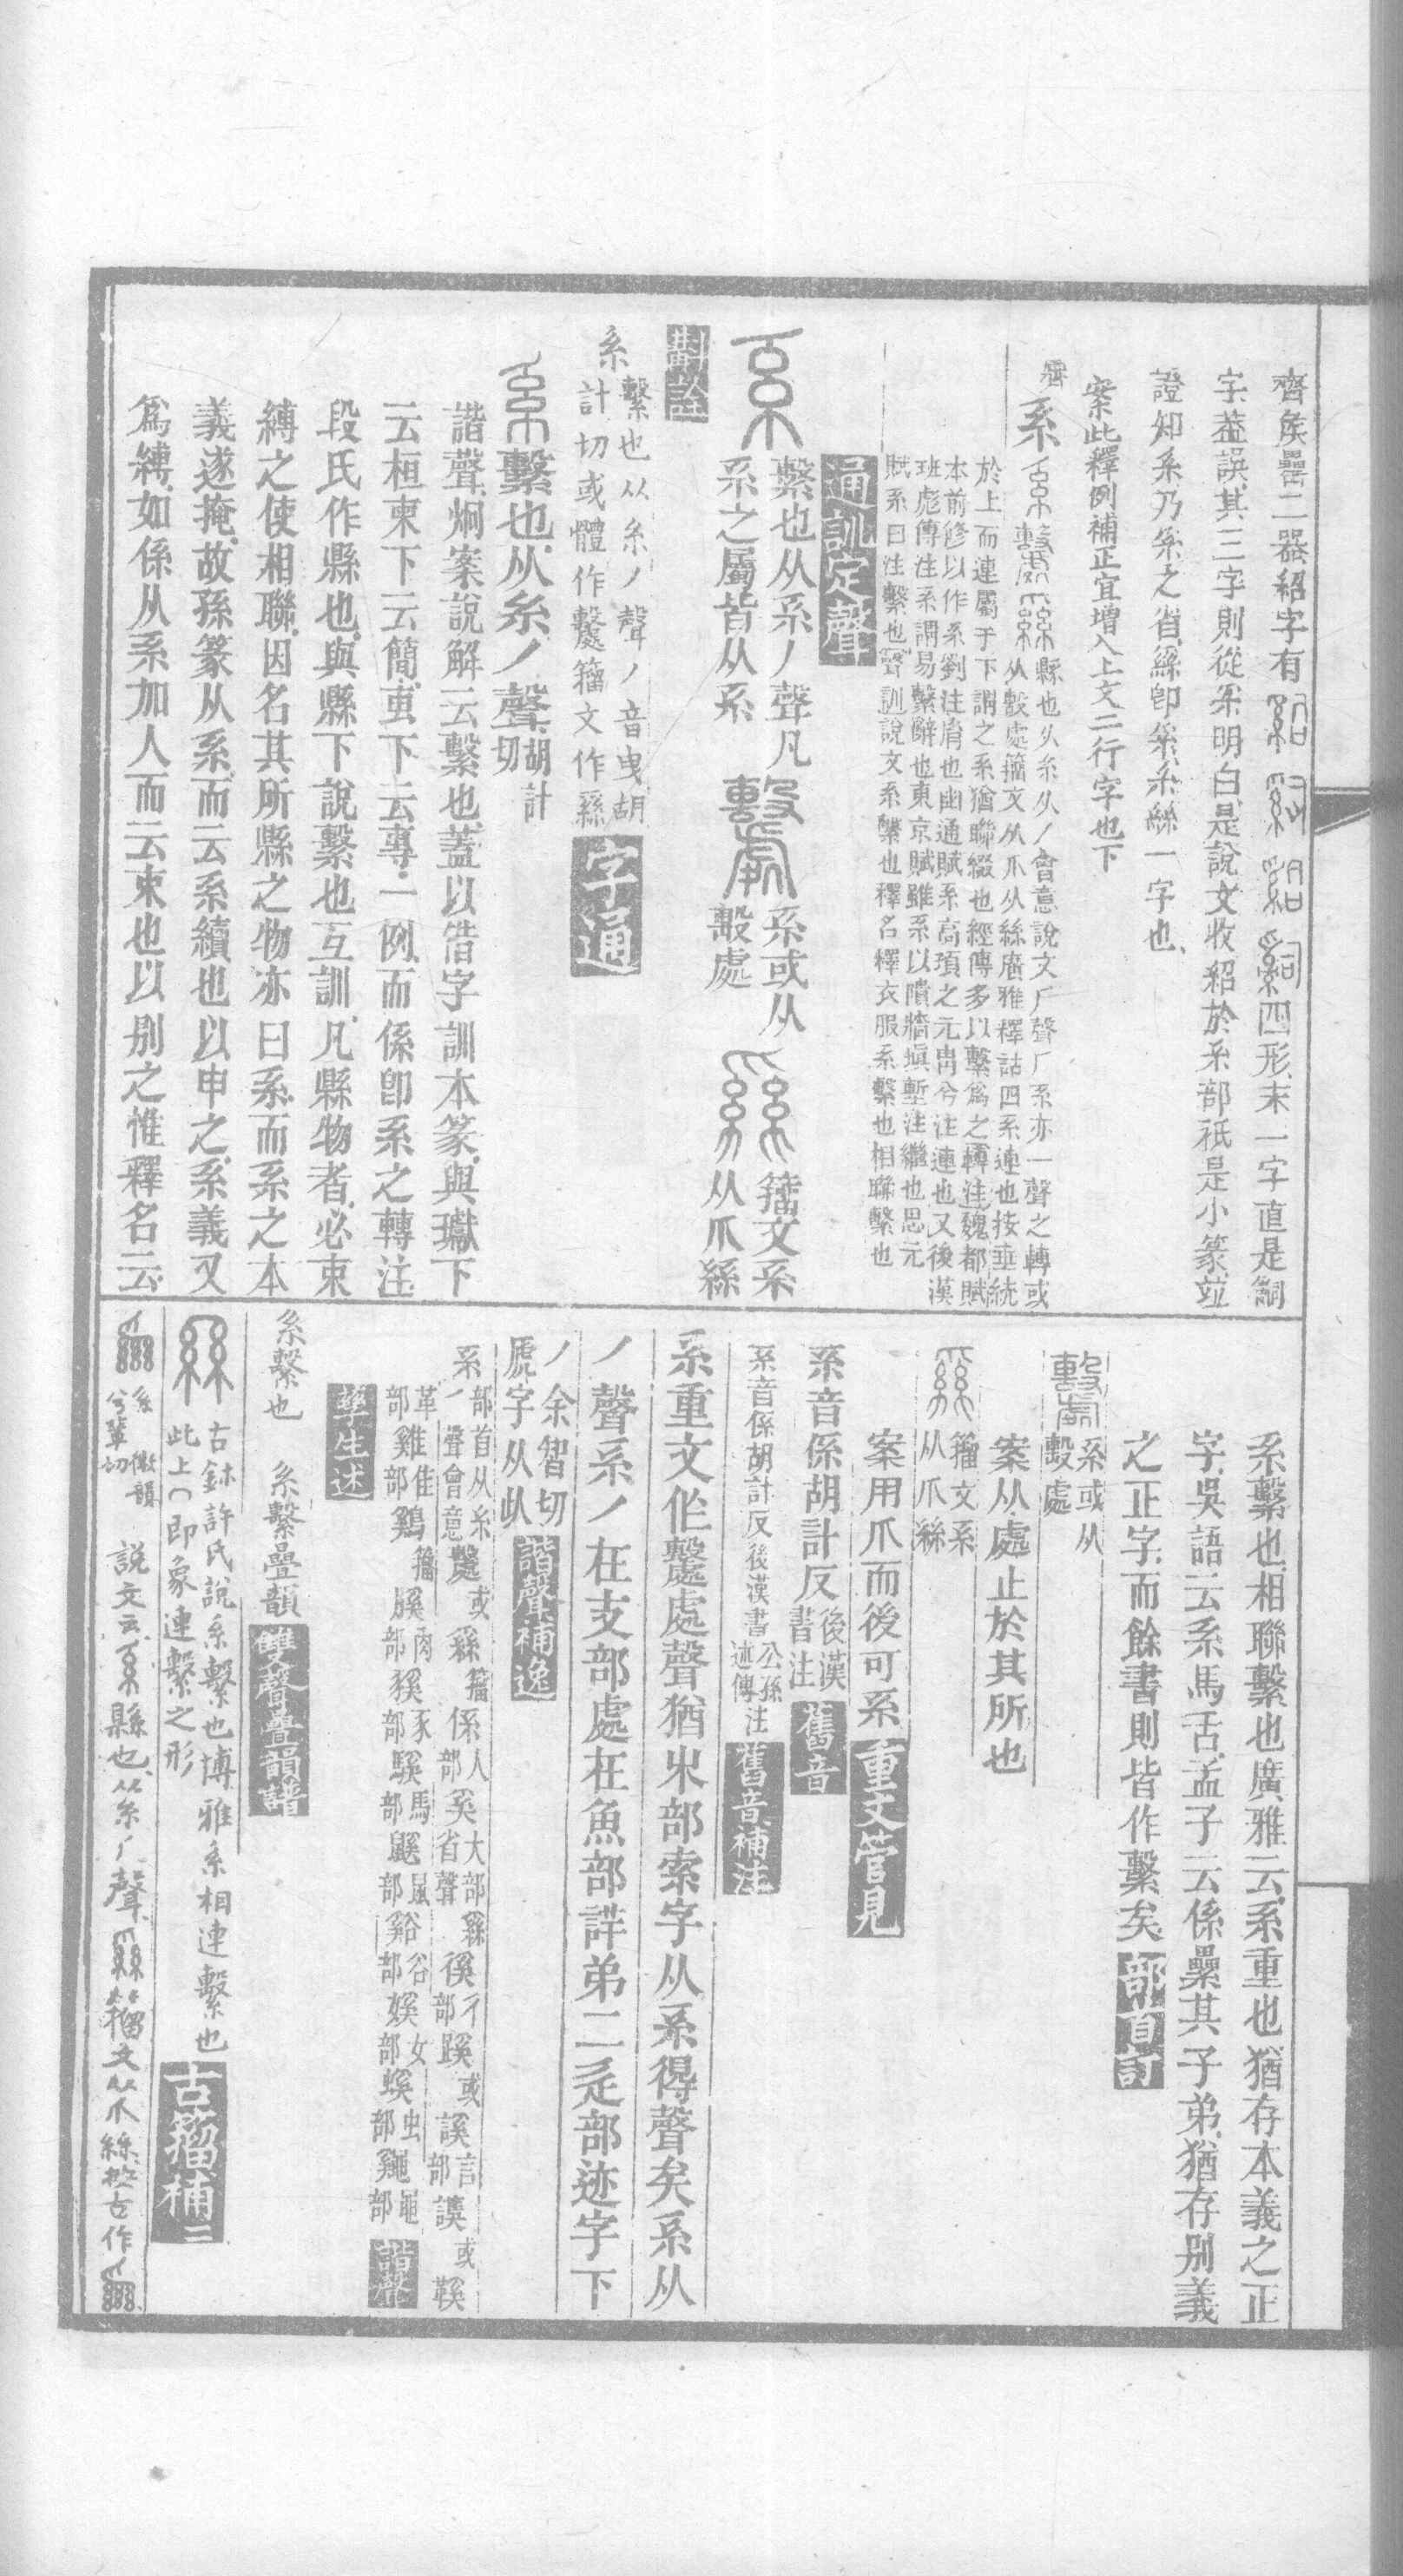 齊矦罍二器紹字有四形末一字直是嗣
字葢誤其三字則從糸明白是說文收紹於糸部祇是小篆竝
證知系乃糸之省絲卽糸糸絲一字也
案此釋例補正宜增入上文二行字也下
系 縣也从糸从丿會意說文厂聲厂系亦一聲之轉或
从毄處籀文从爪从絲廣雅釋詁四系連也按垂統
於上而連屬于下謂之系猶聯綴也經傳多以繫爲之轉注魏都賦
本前修以作系劉注胄也幽通賦系高頊之元冑兮注連也又後漢
班彪傳注系謂易繫辭也東京賦雖系以隤牆塡塹注繼也思元
賦系曰注繫也聲訓說文系繫也釋名釋衣服系繫也相聯繫也
通訓定聲
繫也从糸丿聲凡
系之屬皆从系
系或从
毄處
籀文系
从爪絲
斠詮
系 繫也从糸丿聲丿音曳胡
計切或體作繫籀文作䌛
字通
繫也从糸丿聲胡計切
諧聲炯案說解云繫也蓋以借字訓本篆與瓛下
云桓柬下云簡叀下云專一例而係卽系之轉注
段氏作縣也與縣下說繫也互訓凡縣物者必束
縛之使相聯因名其所縣之物亦曰系而系之本
義遂掩故孫篆从系而云系續也以申之系義又
爲縛如係从系加人而云束也以別之惟釋名云
系繫也相聯繫也廣雅云系重也猶存本義之正
字吳語云系馬舌孟子云係纍其子弟猶存別義
之正字而餘書則皆作繫矣 部首訂
系或从
毄處
案从處止於其所也
籀文系
从爪絲
案用爪而後可系 重文管見
系音係胡計反 後漢
書注
舊音
系音係胡計反後漢書公孫
述傳注
舊音補注
系重文作繫處聲猶𣎵部索字从系得聲矣系从
丿聲系丿在支部處在魚部詳弟二辵部迹字下
丿余智切
虒字从㐌
諧聲補逸
系 部首从糸
丿聲會意
或 籀 係人部 奚大部省聲 徯彳部 蹊或 謑言部 䜁或 鞵
革部 雞隹部 鷄籀 膎肉部 豯豕部 騱馬部 鼷鼠部 谿谷部 娭女部 螇虫部 部
諧聲
孳生述
系繫也 系繫疊韻 雙聲疊韻譜
古鉥許氏說系繫也博雅系相連繫也
此上即象連繫之形
古籀補二
系 微韻
兮輩切
說文云縣也从糸厂聲 籀文从爪絲按古作